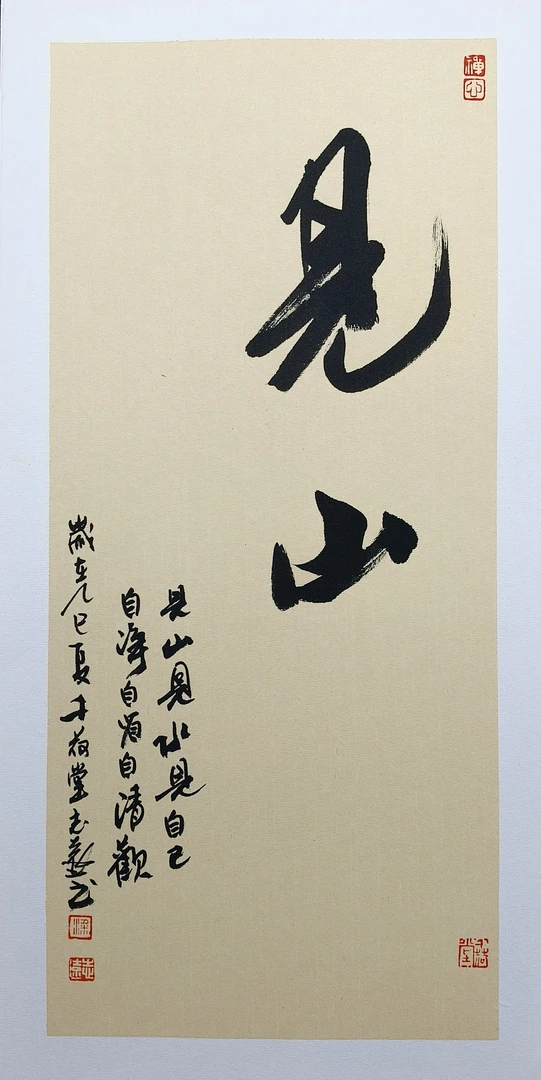 見山
見山見水見自己
自淨自省自清觀
歲在乙巳夏千荷堂志书
禪心